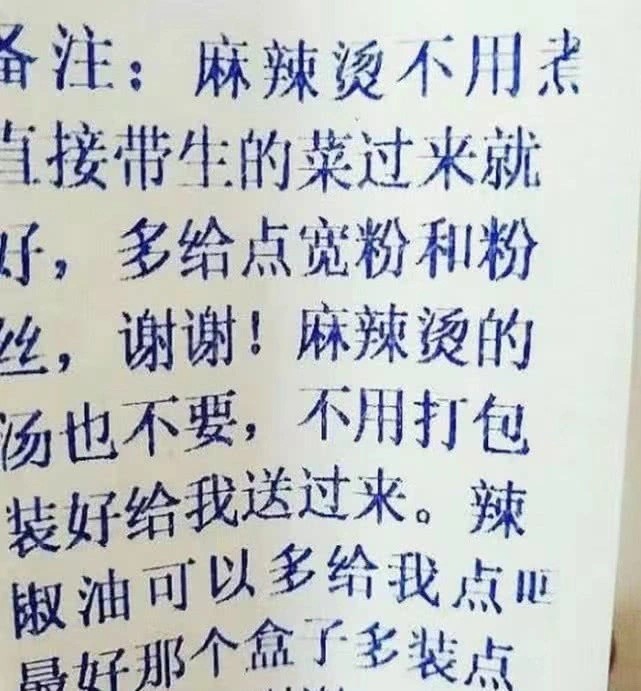 备注：麻辣烫不用煮
直接带生的菜过来就
好，多给点宽粉和粉
丝，谢谢！麻辣烫的
汤也不要，不用打包
装好给我送过来。辣
椒油可以多给我点吧
最好那个盒子多装点